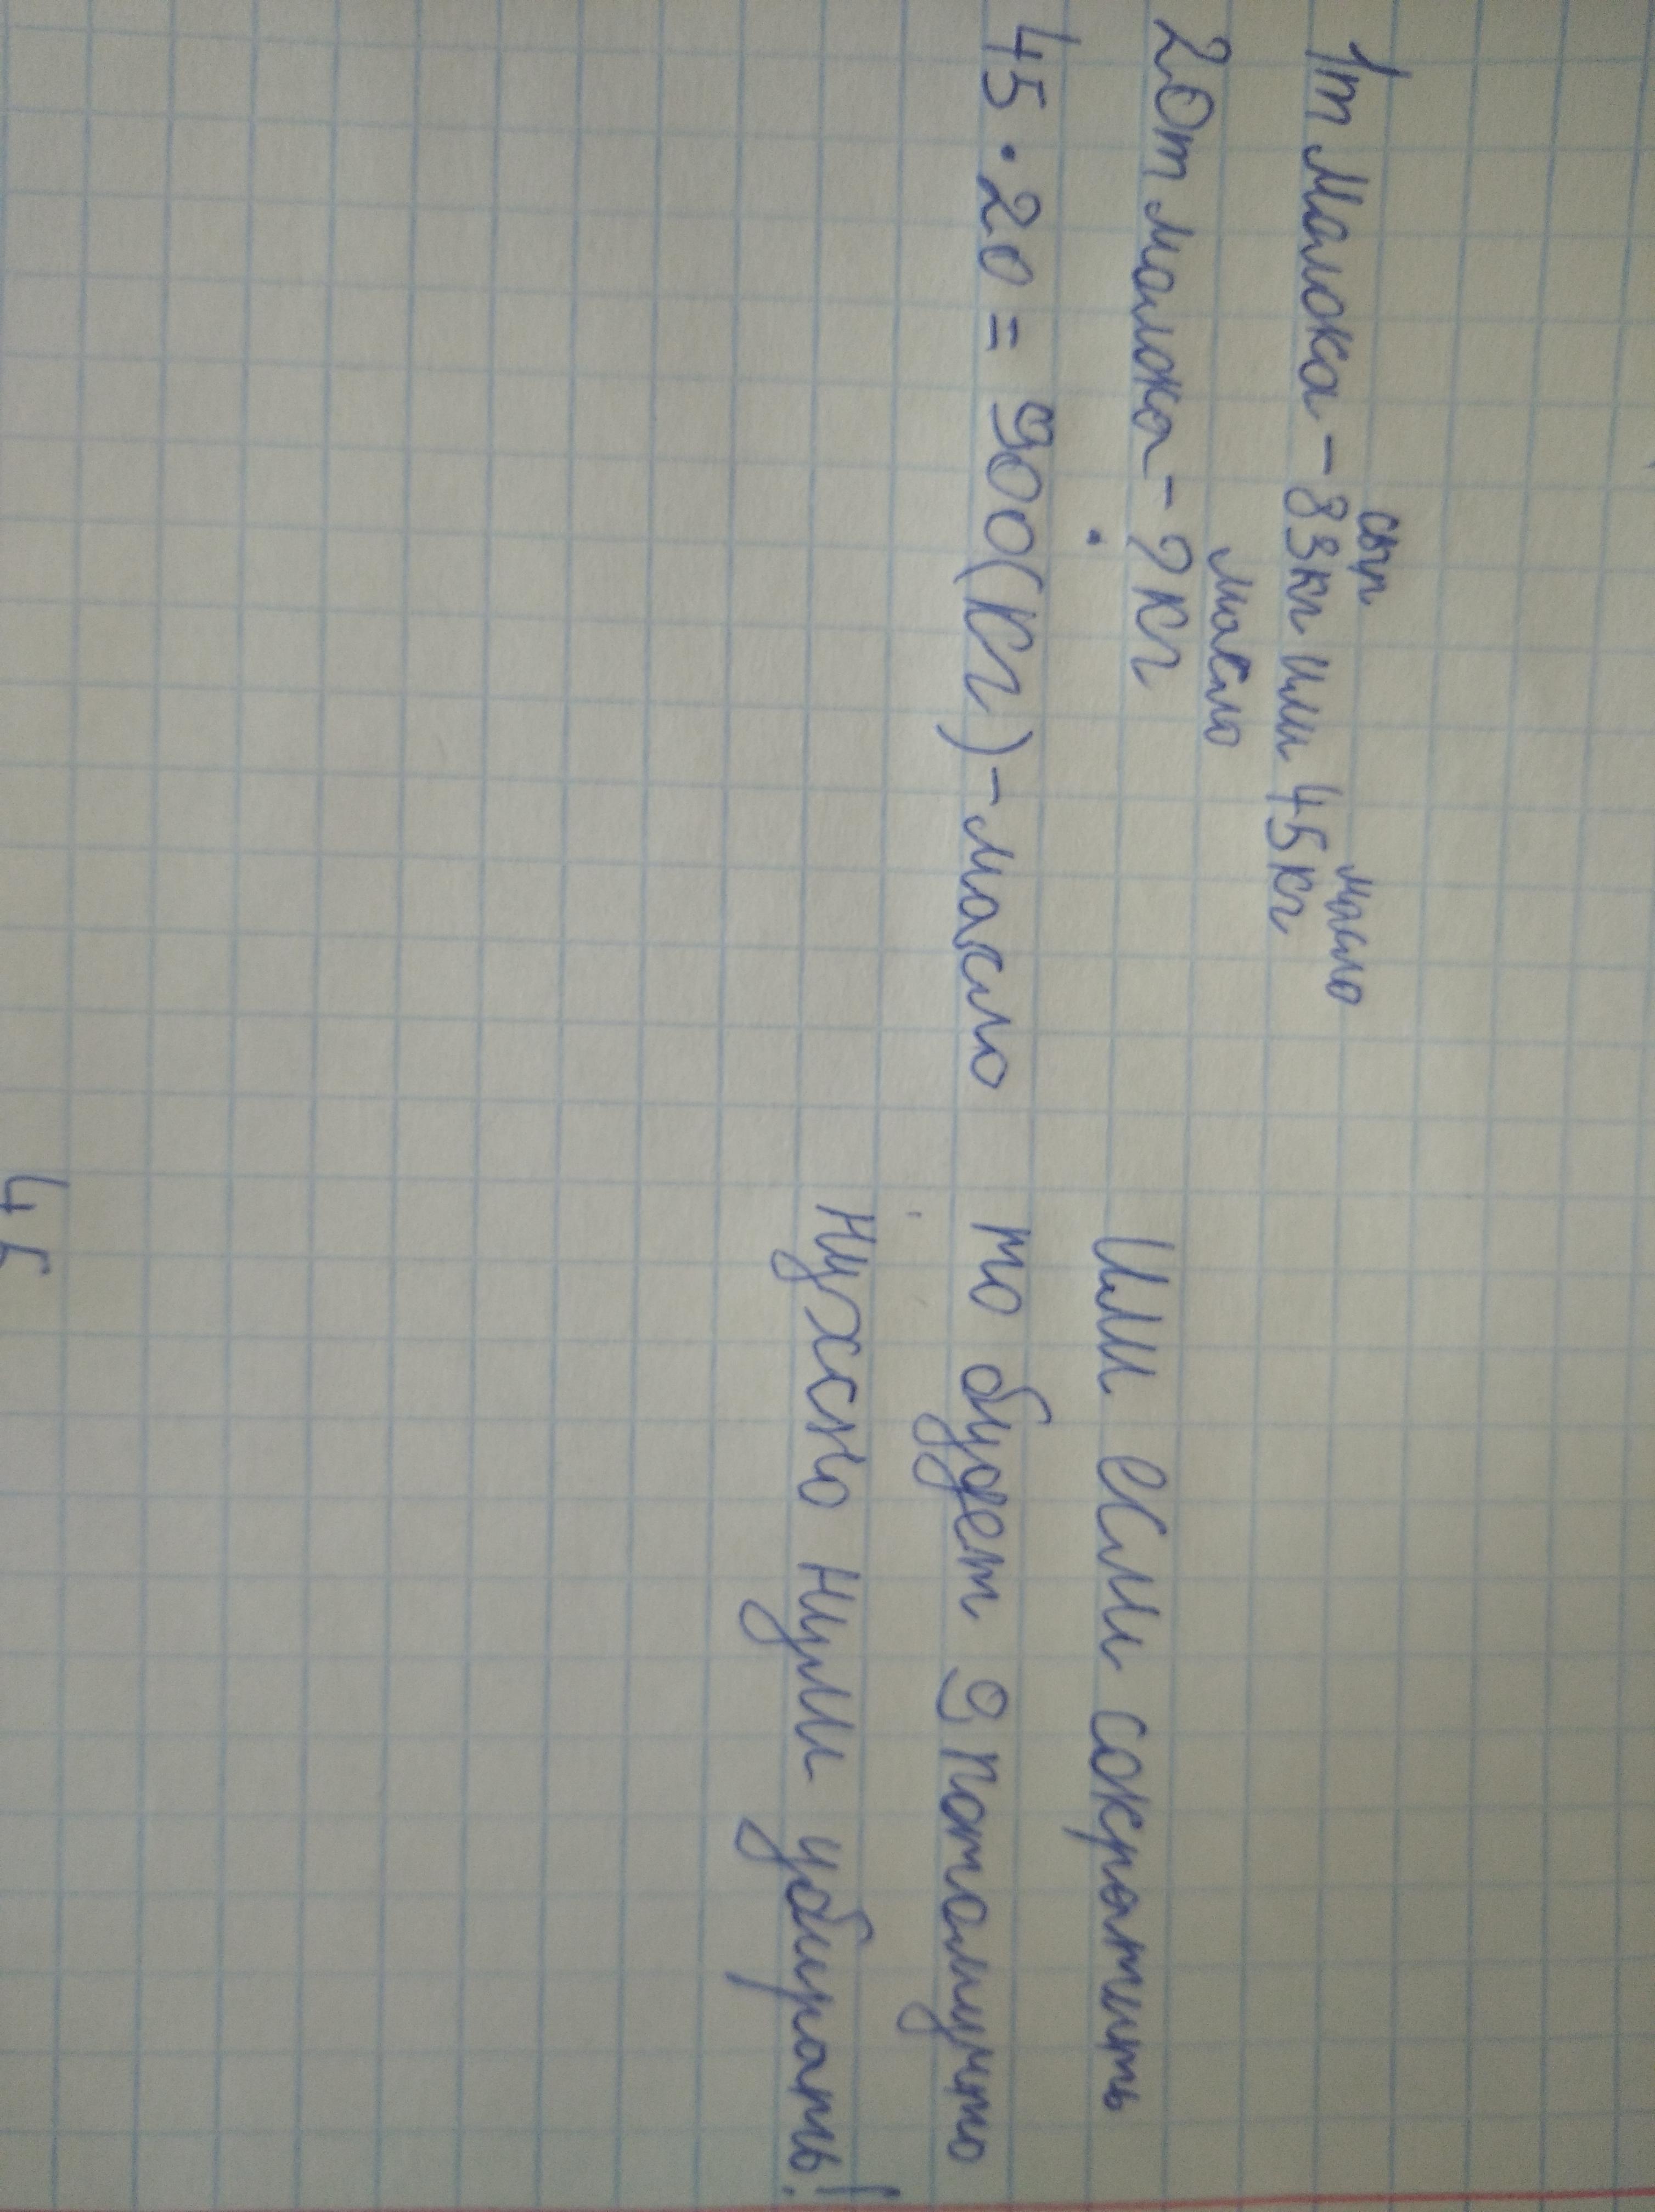 сыр масло
1т малока - 83кг или 45кг
масло
20т малока - ? кг
45 · 20 = 900(кг) - масло
Или если сократить
то будет 9 потомучто
нужно нули убирать!
45